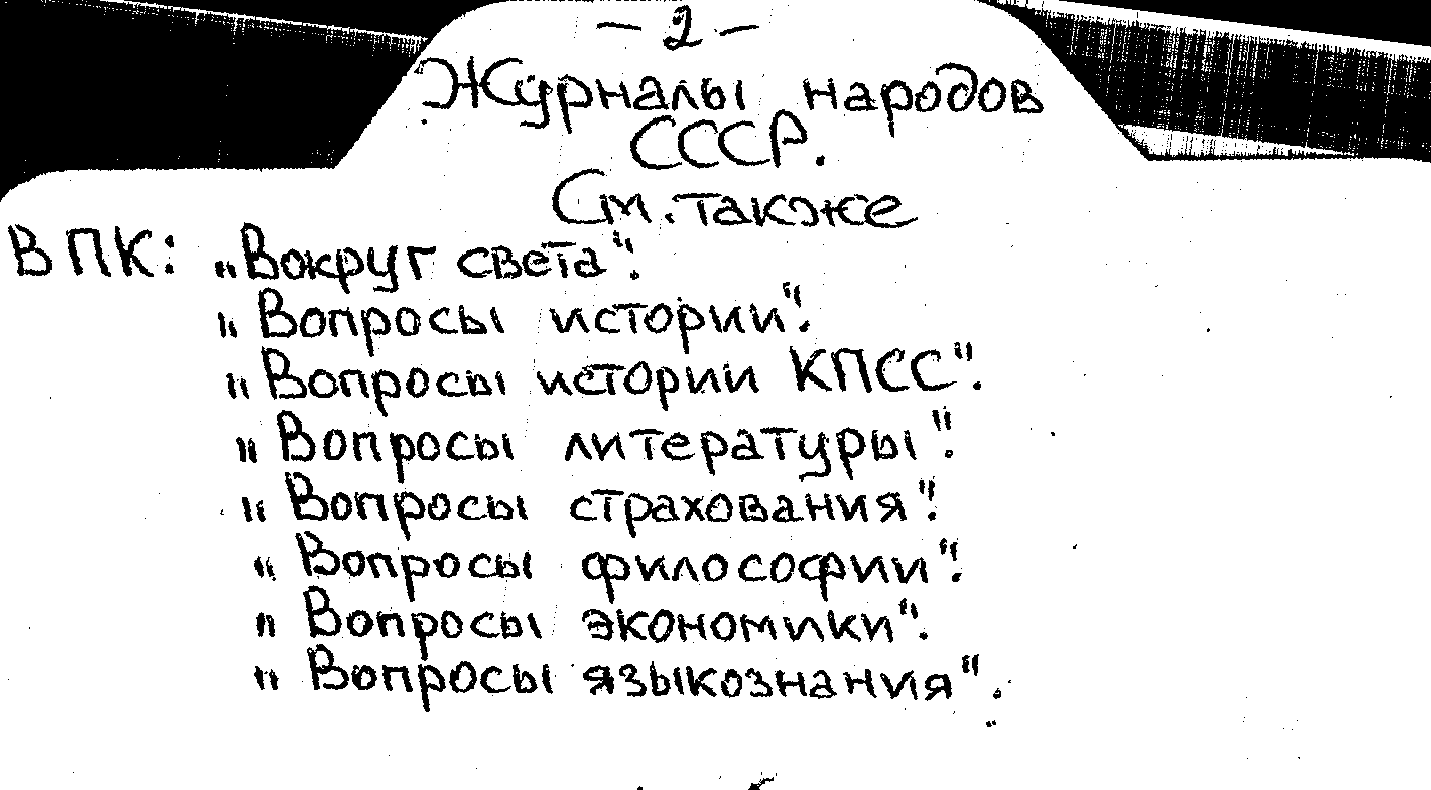 – 2 –
Журналы народов
СССР.
См. также
В ПК: „Вокруг света".
„Вопросы истории".
„Вопросы истории КПСС".
„Вопросы литературы".
„Вопросы страхования".
„Вопросы философии".
„Вопросы экономики".
„Вопросы языкознания".